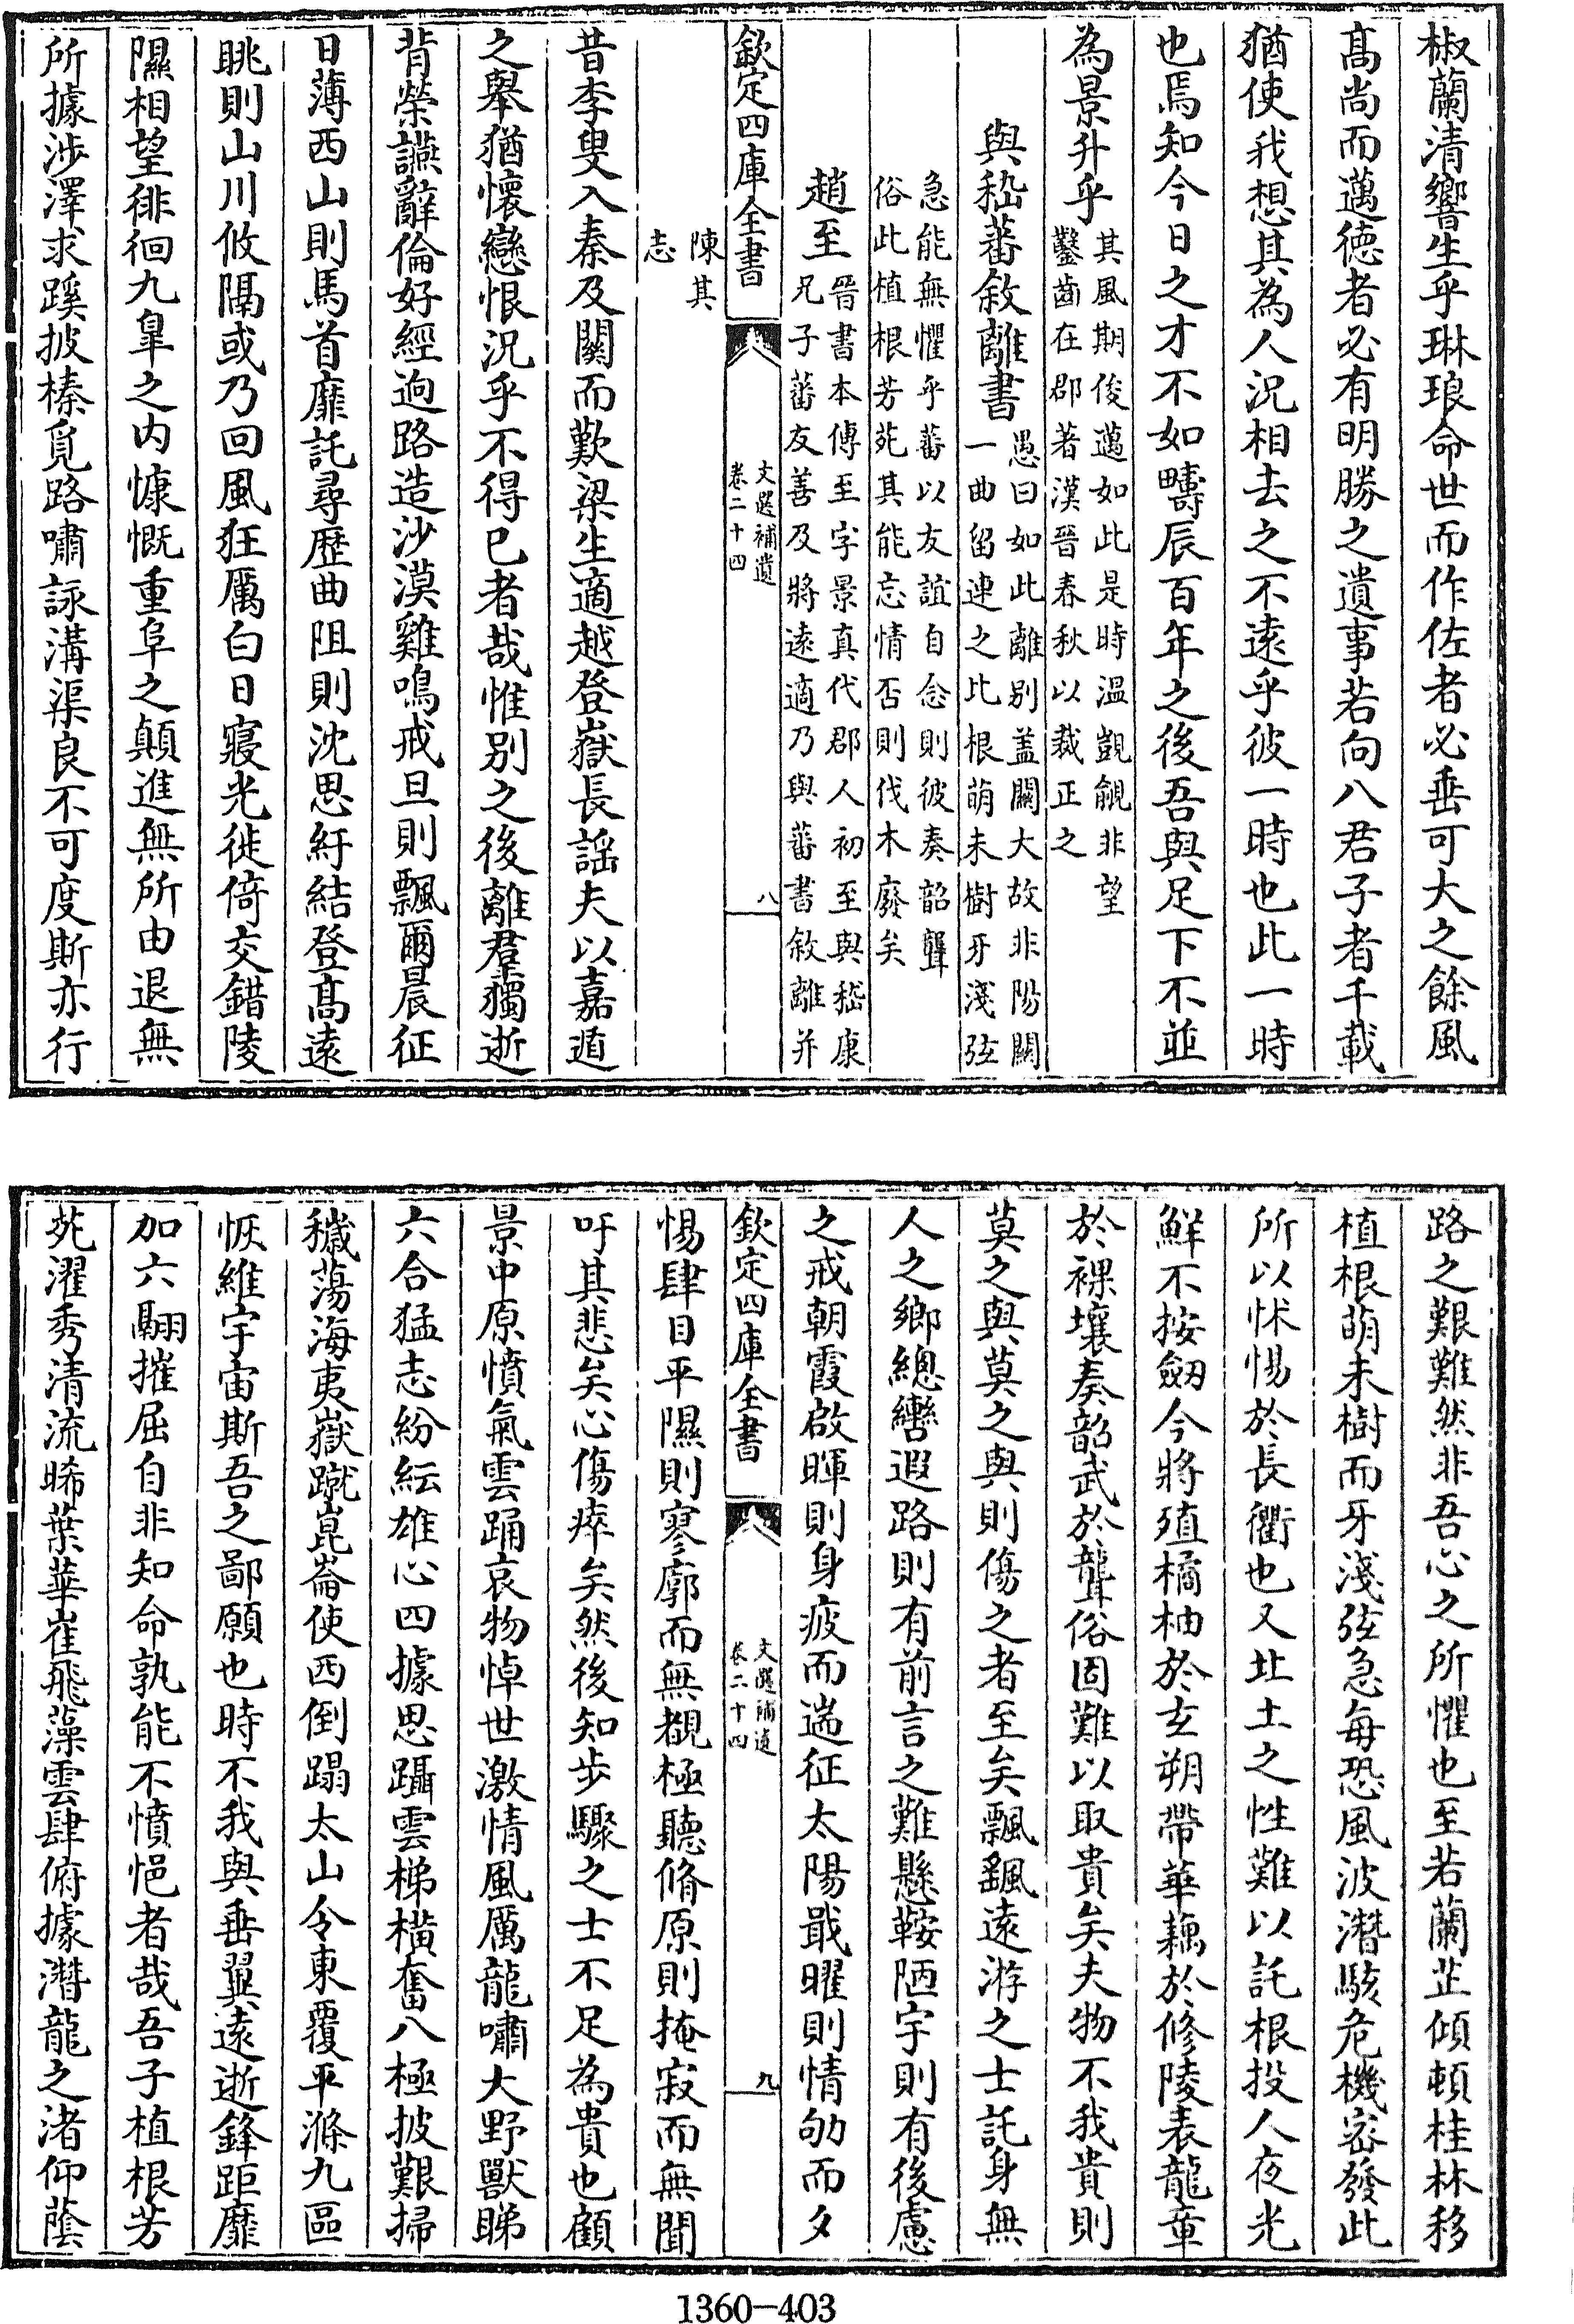 椒蘭清響生乎琳琅命世而作佐者必垂可大之餘風
髙尚而邁德者必有明勝之遺事若向八君子者千載
猶使我想其為人況相去之不遠乎彼一時也此一時
也焉知今日之才不如疇辰百年之後吾與足下不並
為景升乎
其風期俊邁如此是時温覬覦非望
鑿齒在郡著漢晉春秋以裁正之
與嵇蕃敘離書
愚曰如此離別盖關大故非陽關
一曲留連之比根萌未樹牙淺弦
急能無懼乎蕃以友誼自念則彼奏韶聾
俗此植根芳苑其能忘情否則伐木廢矣
趙至
晉書本傳至字景真代郡人初至與嵇康
兄子蕃友善及將遠適乃與蕃書敘離并
欽定四庫全書
文選補遺
卷二十四
八
陳其
志
昔李叟入秦及關而歎梁生適越登嶽長謡夫以嘉遁
之舉猶懷戀恨況乎不得已者哉惟别之後離羣獨逝
背榮讌辭倫好經逈路造沙漠雞鳴戒旦則飄爾晨征
日薄西山則馬首靡託尋歴曲阻則沈思紆結登髙遠
眺則山川攸隔或乃回風狂厲白日寢光徙倚交錯陵
隰相望徘徊九臯之内慷慨重阜之顛進無所由退無
所據涉澤求蹊披榛覓路嘯詠溝渠良不可度斯亦行
路之艱難然非吾心之所懼也至若蘭芷傾頓桂林移
植根萌未樹而牙淺弦急每恐風波潛駭危機宻發此
所以怵惕於長衢也又北土之性難以託根投人夜光
鮮不按劒今將殖橘柚於玄朔帶華藕於修陵表龍章
於裸壤奏韶武於聾俗固難以取貴矣夫物不我貴則
莫之與莫之與則傷之者至矣飄颻遠游之士託身無
人之鄉總轡遐路則有前言之難懸鞍陋宇則有後慮
之戒朝霞啟暉則身疲而遄征太陽戢曜則情劬而夕
欽定四庫全書
文選補遺
卷二十四
九
惕肆目平隰則寥廓而無覩極聽脩原則掩寂而無聞
吁其悲矣心傷瘁矣然後知步驟之士不足為貴也顧
景中原憤氣雲踊哀物悼世激情風厲龍嘯大野獸睇
六合猛志紛紜雄心四據思躡雲梯横奮八極披艱掃
穢蕩海夷嶽蹴崑崙使西倒蹋太山令東覆平滌九區
恢維宇宙斯吾之鄙願也時不我與垂翼遠逝鋒距靡
加六翮摧屈自非知命孰能不憤悒者哉吾子植根芳
苑濯秀清流晞葉華崖飛藻雲肆俯據潛龍之渚仰蔭
1360-403